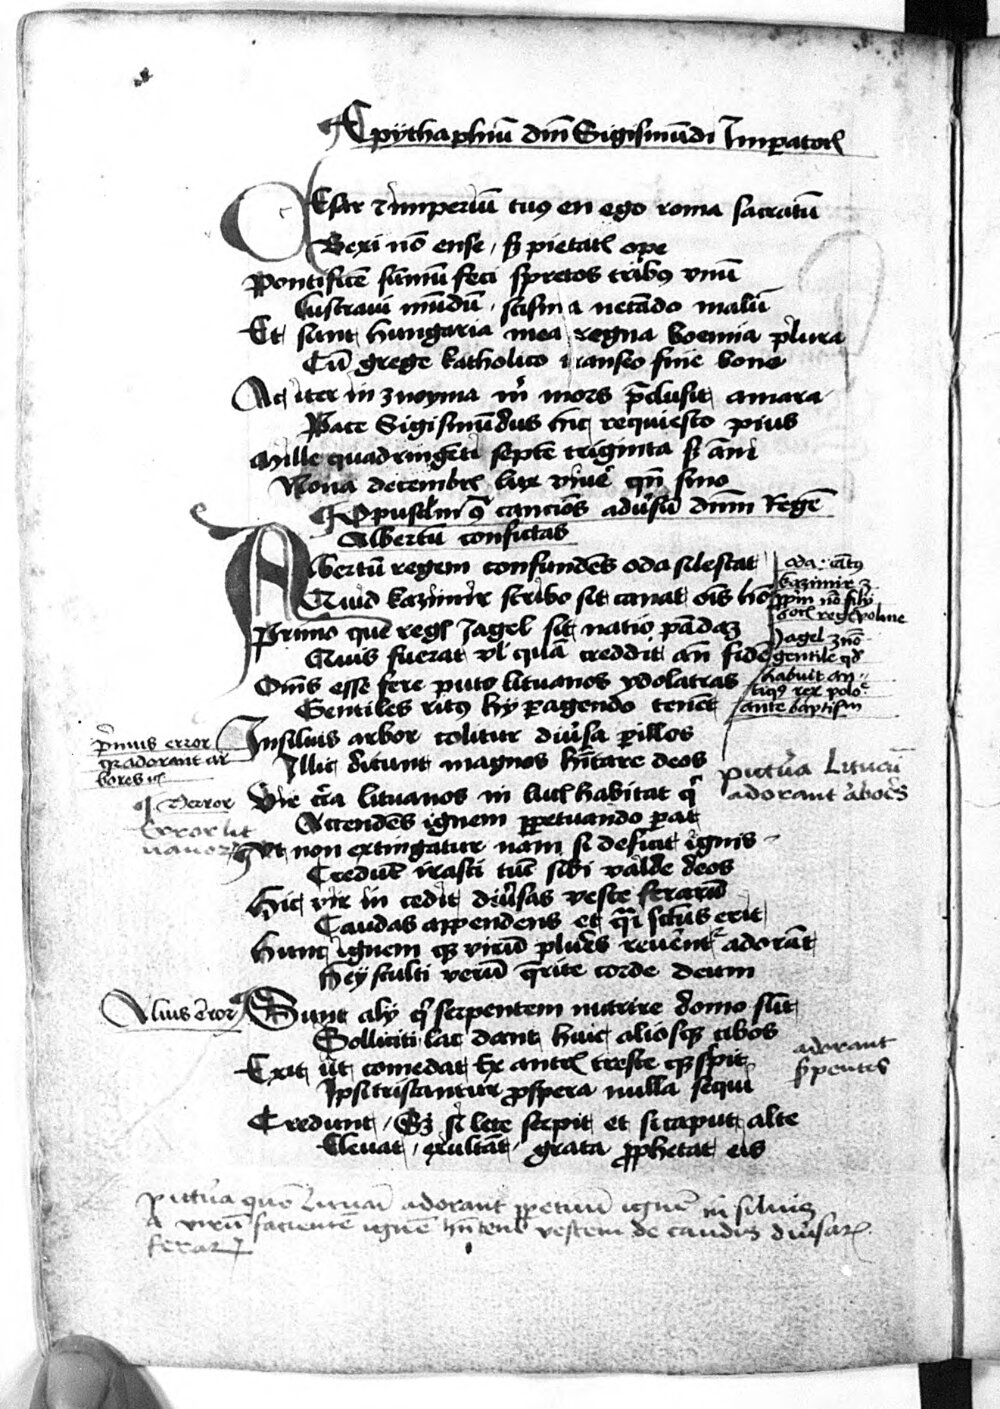 Epÿthaphiū dm̄ Sigismūdi Imꝑatorꝭ
CEsar ⁊ imperiū tuꝯ en ego roma sacratū
Rexi nō ense / sꝫ pietatꝭ ope
Pontificē sūmū feci spretos tribꝯ vnū
Lustraui mūdū / scisma necādo malū
Et sunt hungaria mea regna boemia plura
Cū grege katholico transeo fine bono
Ac iter in znoyma m̄ mors p̄clusit amara
Pace Sigismūdus hic requiesco pius
Mille quadringēti septē triginta sꝫ anī
Nona decembrꝭ lux qn̄ sino
Opusclm̄ cancióīs adūsū dnm̄ Regē
Albertū confictas
Albertū regem confundēs oda silescat
Quid kazimir scribo sit canat oīs hō
Primo que regꝭ Jagel sit natio pādaꝫ
Quis fuerat vl quā credidit an̄ fidē
Om̄s esse fere puto lituanos ydolatras
Gentiles ritꝯ hy ꝑagendo tenēt
In siluis arbor colitur diūsa ꝑ illos
Illic dicunt magnos hītare deos
Vir lituanos in lucꝭ habitat
Attendēs ignem ꝑpetuando ꝑat
Vt non extingatur nam si deficit ignis
Credūt irasci tūc sibi valde deos
Hic vir in cedit diūsas veste ferarū
Caudas appendens et q̄i scīus erit
Hunc ignem qꝫ virū plūes reuērent adorāt
Hey stulti verū q̄rite corde deum
Sunt alÿ q̄ serpentem nutrire domo sūt
Solliciti lac dant huic aliosqꝫ cibos
Exit ut comedat Ex antrꝭ
Ipsi tristantur ꝓspera nulla sequi
Credunt / Sꝫ si lete serpit et si caput alte
Eleuat / exultāt / grata ꝓphetat eis
oda : cātꝯ
kazimir
nō filÿ
regꝭ polone
Jagel nō
gentile qd̄
habuit an
tiqꝯ rex polo
ante baptism
p̄mus error
q̄ adorant ar
bores
error
Error lit
uanorꝫ
pictūa Lituāu
adorant arboēs
Alius ēror
adorant
sꝑentes
Pictūa quō Lituaī adorant ꝑpetuū ignē in siluis
⁊ virū facientē ignē hn̄tem vestem de caudis diūsarꝫ
ferarꝫ